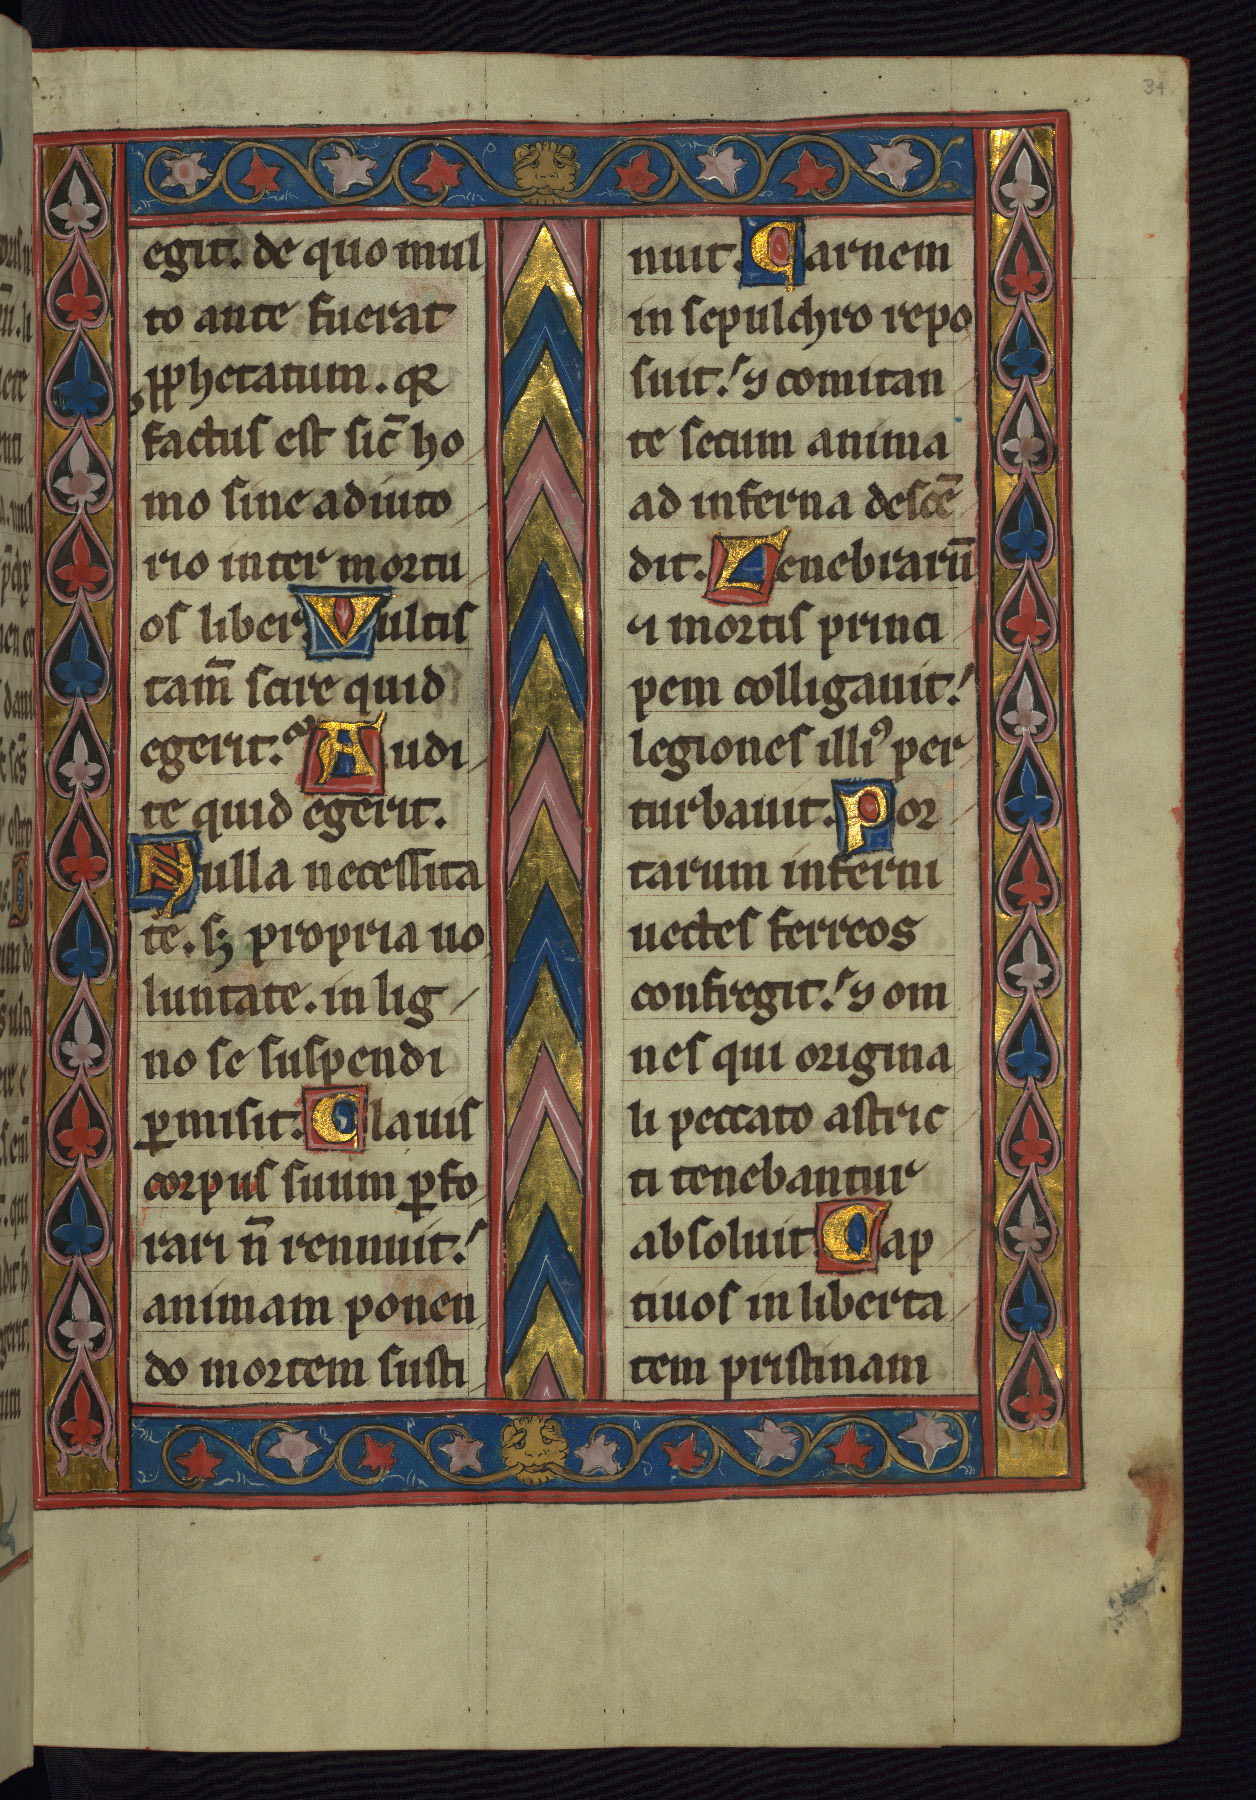 34
egit. de quo mul
to ante fuerat
ꝓphetatum. qꝛ
factus est sic̄ ho
mo sine adiuto
rio inter mortu
os liber. Multis
tam̄ scire quid
egerit. Audi
te quid egerit.
Nulla necessita
te. sꝫ propria uo
luntate. in lig
no se suspendi
ꝑmisit. Clauis
corpus suum ꝑfo
rari n̄ rennuit.
animam ponen
do mortem susti
nuit. Carnem
in sepulchro repo
suit. ⁊ comitan
te secum anima
ad inferna descē
dit. Tenebrarū
⁊ mortis princi
pem colligauit.
legiones illiꝰ per
turbauit. Por
tarum inferni
uectes ferreos
confregit. ⁊ om
nes qui origina
li peccato astric
ti tenebantur
absoluit. Cap
tiuos in liberta
tem pristinam